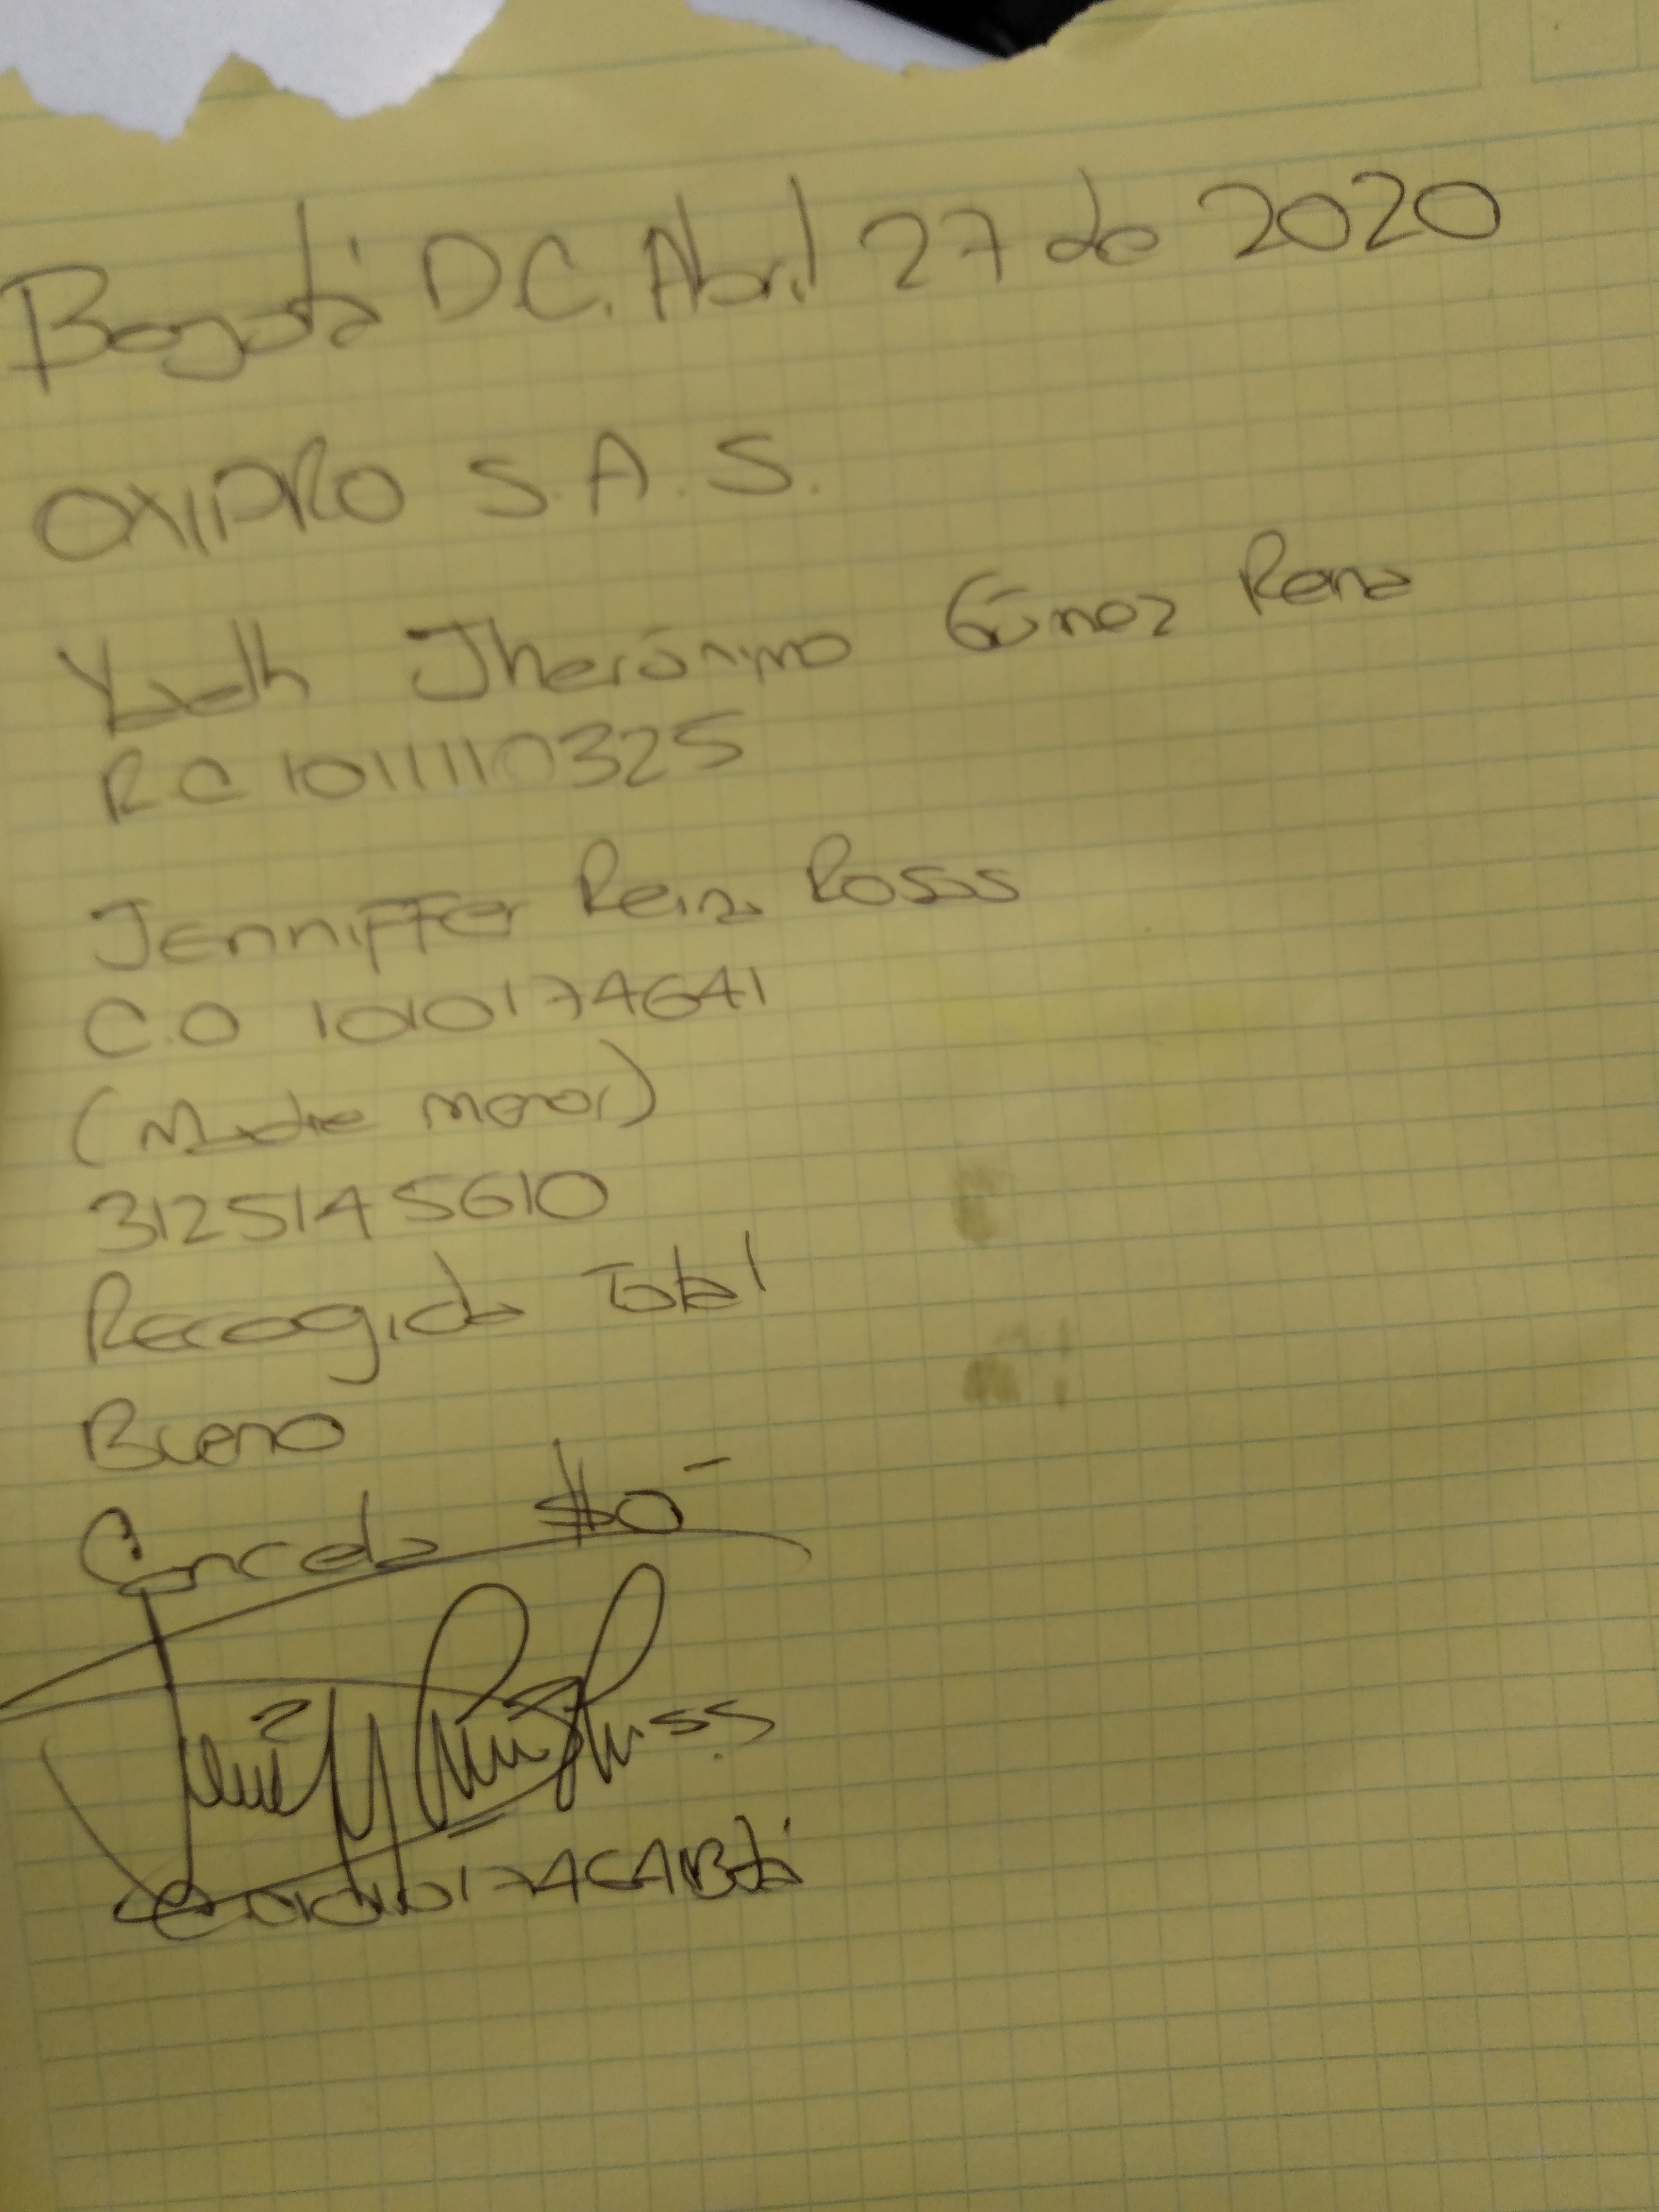 Bogotá D.C. Abril 27 de 2020
OXIPRO S.A.S.
Jherónimo Gómez Reina
RC 1011110325
Jenniffer Reina Rosas
C.C 1010174641
(Madre menor)
3125145610
Recogida Total
Bueno
Cancela $0-